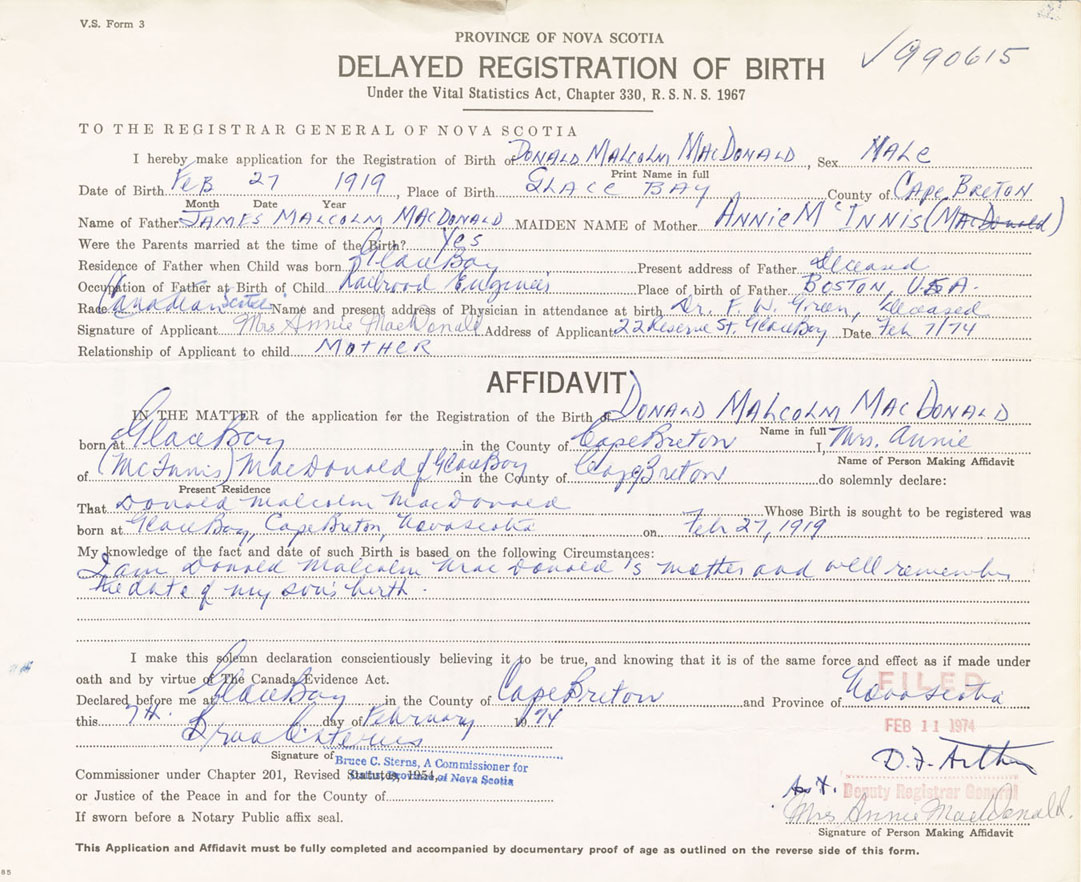 V.S. Form 3
PROVINCE OF NOVA SCOTIA
DELAYED REGISTRATION OF BIRTH
✓990615
Under the Vital Statistics Act, Chapter 330, R.S.N.S. 1967
TO THE REGISTRAR GENERAL OF NOVA SCOTIA
I hereby make application for the Registration of Birth of DONALD MALCOLM MACDONALD, Sex MALE
Print Name in full
Date of Birth FEB 27 1919, Place of Birth GLACE BAY County of CAPE BRETON
Month Date Year
Name of Father JAMES MALCOLM MACDONALD MAIDEN NAME of Mother ANNIE Mc INNIS (MacDonald)
Were the Parents married at the time of the Birth? Yes
Residence of Father when Child was born Glace Bay Present address of Father Deceased
Occupation of Father at Birth of Child Railroad Engineer Place of birth of Father BOSTON, U.S.A.
Race Canadian Scotch Name and present address of Physician in attendance at birth Dr. F. W. Green, Deceased
Signature of Applicant Mrs Annie MacDonald Address of Applicant 22 Reserve St, Glace Bay Date Feb 7/74
Relationship of Applicant to child MOTHER
AFFIDAVIT
IN THE MATTER of the application for the Registration of the Birth of DONALD MALCOLM MACDONALD
Name in full
born at Glace Bay in the County of Cape Breton I, Mrs. Annie
Name of Person Making Affidavit
of (McInnis) MacDonald of Glace Bay in the County of Cape Breton do solemnly declare:
Present Residence
That Donald Malcolm MacDonald Whose Birth is sought to be registered was
born at Glace Bay, Cape Breton, Nova Scotia on Feb 27, 1919
My knowledge of the fact and date of such Birth is based on the following Circumstances:
I am Donald Malcolm MacDonald's mother and well remember
the date of my son's birth.
I make this solemn declaration conscientiously believing it to be true, and knowing that it is of the same force and effect as if made under
oath and by virtue of The Canada Evidence Act.
FILED
Declared before me at Glace Bay in the County of Cape Breton and Province of Nova Scotia
this 7th. day of February 1974
FEB 11 1974
Signature of
Bruce C. Sterns, A Commissioner for
Commissioner under Chapter 201, Revised Statutes, 1954,
Province of Nova Scotia
D.F. Arthur
or Justice of the Peace in and for the County of
Deputy Registrar General
If sworn before a Notary Public affix seal.
Mrs Annie MacDonald.
Signature of Person Making Affidavit
This Application and Affidavit must be fully completed and accompanied by documentary proof of age as outlined on the reverse side of this form.
85